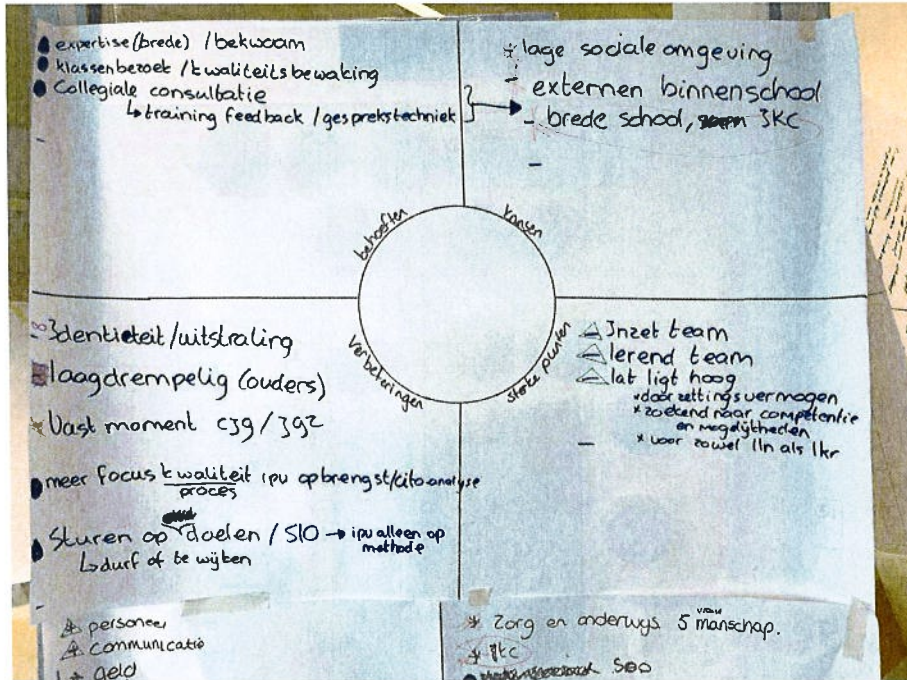 expertise (brede) / bekwaam
klassenbezoek / kwaliteitsbewaking
Collegiale consultatie
↳ training feedback / gesprekstechniek
lage sociale omgeving
externen binnenschool
brede school, IKC
behoeften
kansen
verbeteringen
sterke punten
Identieteit / uitstraling
laagdrempelig (ouders)
Vast moment CJG / JGZ
meer focus kwaliteit ipv opbrengst/cito analyse
proces
Sturen op doelen / SLO → ipv alleen op
methode
↳ durf af te wijken
Inzet team
lerend team
lat ligt hoog
* doorzettingsvermogen
* zoekend naar competentie
en mogelijkheden
* voor zowel lln als lkr
personeel
communicatie
geld
* Zorg en onderwijs 5 manschap.
* IKC
SOO